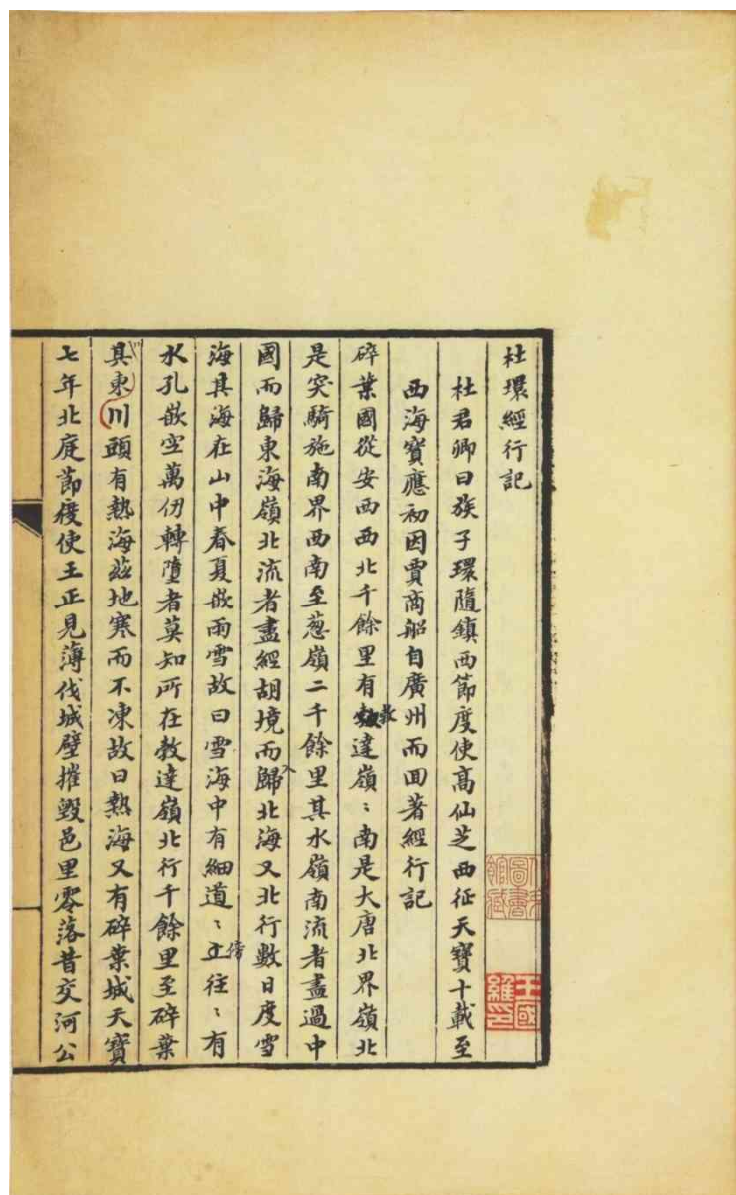 杜環經行記
杜君卿曰族子環隨鎮西節度使高仙芝西征天寶十載至
西海寶應初因賈商船自廣州而回著經行記
碎葉國從安西西北千餘里有敖達嶺﹔南是大唐北界嶺北
是突騎施南界西南至葱嶺二千餘里其水嶺南流者盡過中
國而歸東海嶺北流者盡經胡境而歸入北海又北行數日度雪
海其海在山中春夏嵌雨雪故曰雪海中有細道﹔正傍往﹔有
水孔嵌空萬仞轉墮者莫知所在敖達嶺北行千餘里至碎葉
其東川頭有熱海茲地寒而不凍故曰熱海又有碎葉城天寶
七年北庭節度使王正見薄伐城壁摧毀邑里零落昔交河公
圖書館藏
王國維印